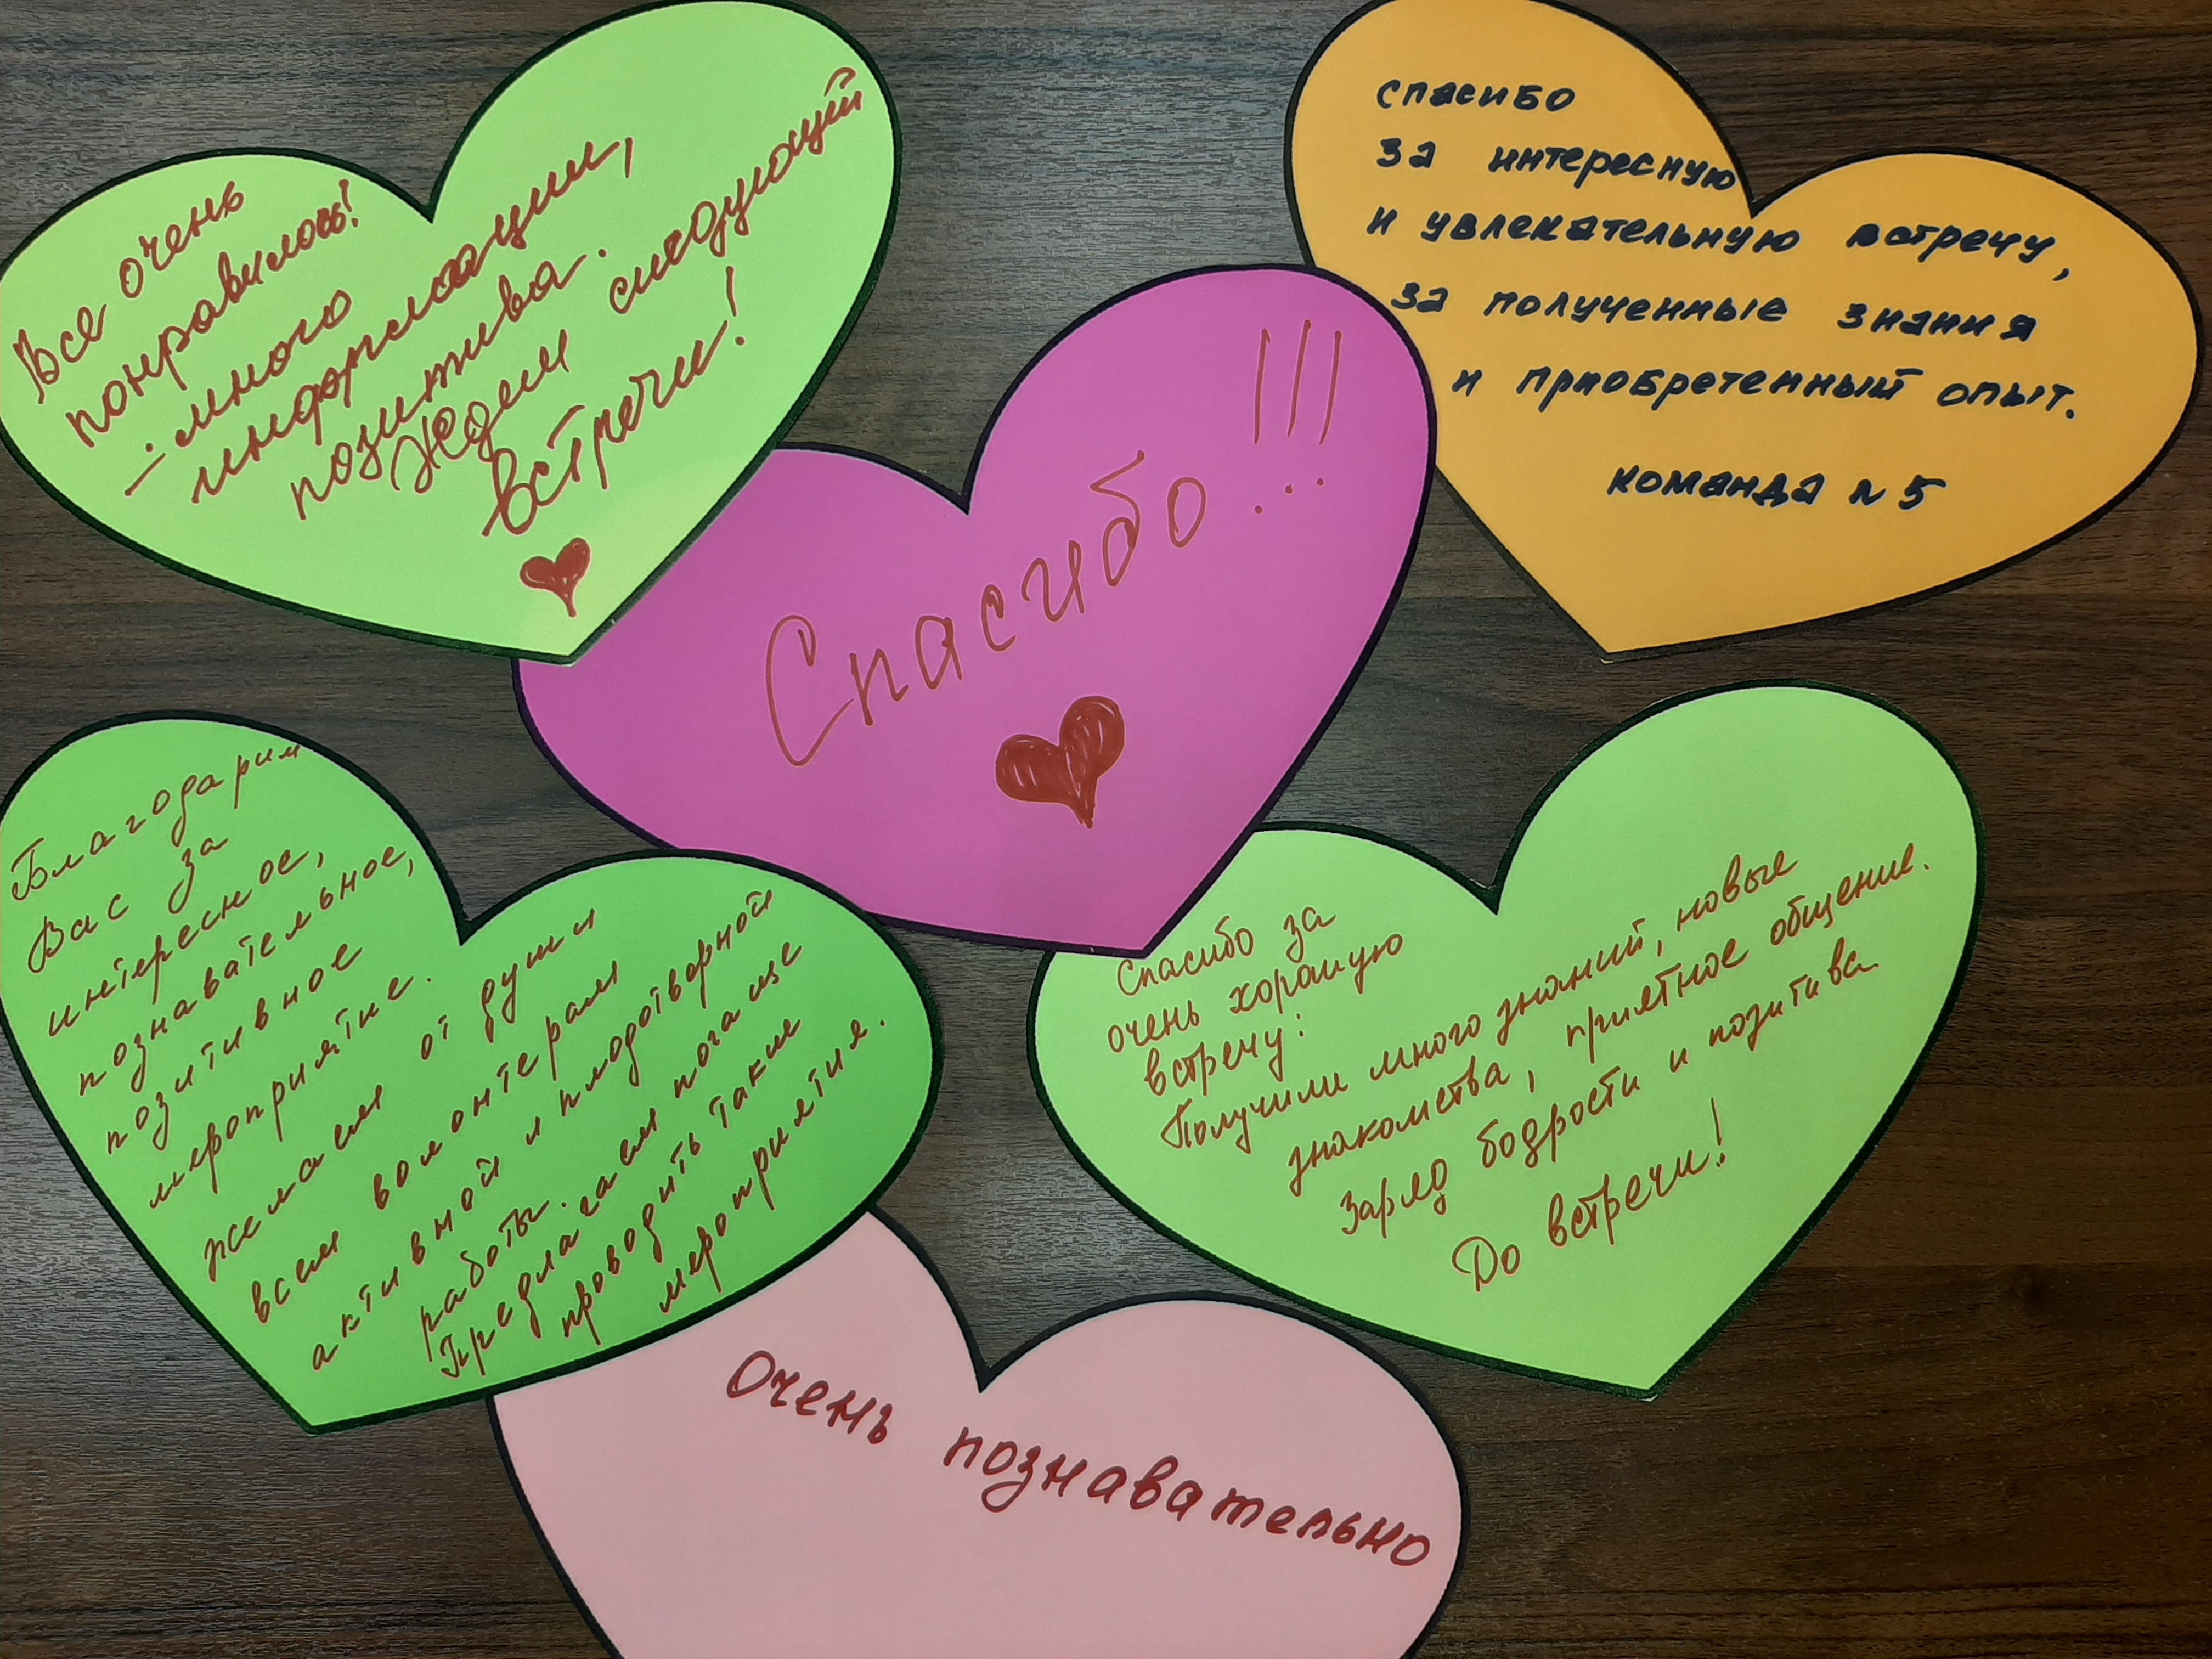 Все очень
понравилось!
- много
информации,
позитива.
Ждем следующей
встречи!
спасибо
за интересную
и увлекательную встречу,
за полученные знания
и приобретенный опыт.
команда № 5
Спасибо!!!
Благодарим
Вас за
интересное,
познавательное,
позитивное
мероприятие.
желаем от души
всем волонтерам
активной и плодотворной
работы.
Предлагаем почаще
проводить такие
мероприятия.
Спасибо за
очень хорошую
встречу:
Получили много знаний, новые
знакомства, приятное общение.
Заряд бодрости и позитива
До встречи!
Очень познавательно